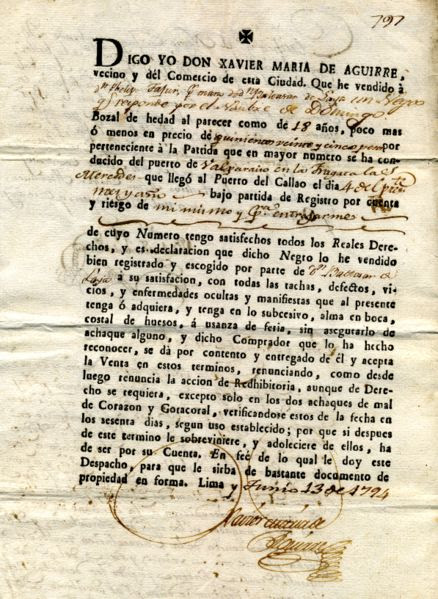 797
DIGO YO DON XAVIER MARIA DE AGUIRRE,
vecino y dél Comercio de esta Ciudad. Que he vendido à
un Negro
q responde por el Nombre de Domingo
Bozal de hedad al parecer como de 18 años, poco mas
ó menos en precio de quinientos veinte y cinco pesos
perteneciente à la Pattida que en mayor numero se ha con-
ducido del puerto de Valparaiso en la Fragata las
Mercedes que llegó al Puerto del Callao el dia 4 del
mes y año bajo partida de Registro por cuenta
y riesgo de mi mismo y
de cuyo Numero tengo satisfechos todos los Reales Dere-
chos, y es declaracion que dicho Negro lo he vendido
bien registrado y escogido por parte de dn Baltasar de
Laya à su satisfacion, con todas las tachas, defectos, vi-
cios, y enfermedades ocultas y manifiestas que al presente
tenga ó adquiera, y tenga en lo subcesivo, alma en boca,
costal de huesos, á usanza de feria, sin asegurarlo de
achaque alguno, y dicho Comprador que lo ha hecho
reconocer, se dá por contento y entregado de él y acepta
la Venta en estos terminos, renunciando, como desde
luego renuncia la accion de Redhibitoria, aunque de Dere-
cho se requiera, excepto solo en los dos achaques de mal
de Corazon y Gotacoral, verificandose estos de la fecha en
los sesenta dias, segun uso establecido; por que si despues
de este termino le sobreviniere, y adoleciere de ellos, ha
de ser por su Cuenta. En feé de lo qual le doy este
Despacho, para que le sirba de bastante documento de
propiedad en forma. Lima y Junio 13 de 1794
Xavier Maria de
Aguirre